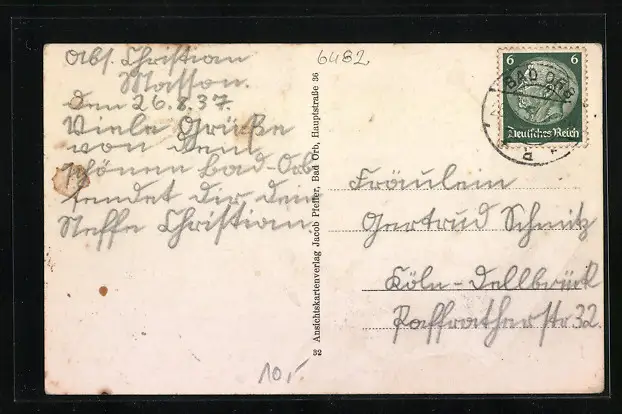 Abs. Christian
Masson.
den 26.8.37.
Viele Grüße
von dem
schönen Bad-Orb
sendet dir dein
Neffe Christian.
6482
6 6
BAD ORB
Deutsches Reich
Fräulein
Gertrud Schmitz
Köln-Dellbrück
Paffratherstr 32.
32 Ansichtskartenverlag Jacob Pfeffer, Bad Orb, Hauptstraße 36
10,-